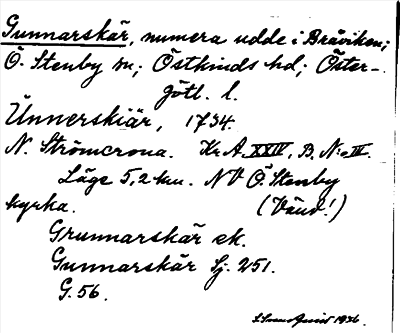 Gunnarskär, numera udde i Bråviken;
Ö. Stenby sn; Östkinds hd; Öster-
götl. l.
Unnerskiär, 1734.
N. Strömcrona. Kr. A. XXIV, B. N:o IX.
Läge 5,2 km. NV Ö. Stenby
kyrka. (Vänd!)
Grunnarskär ek.
Gunnarskär Sj. 251.
G. 56.
1936